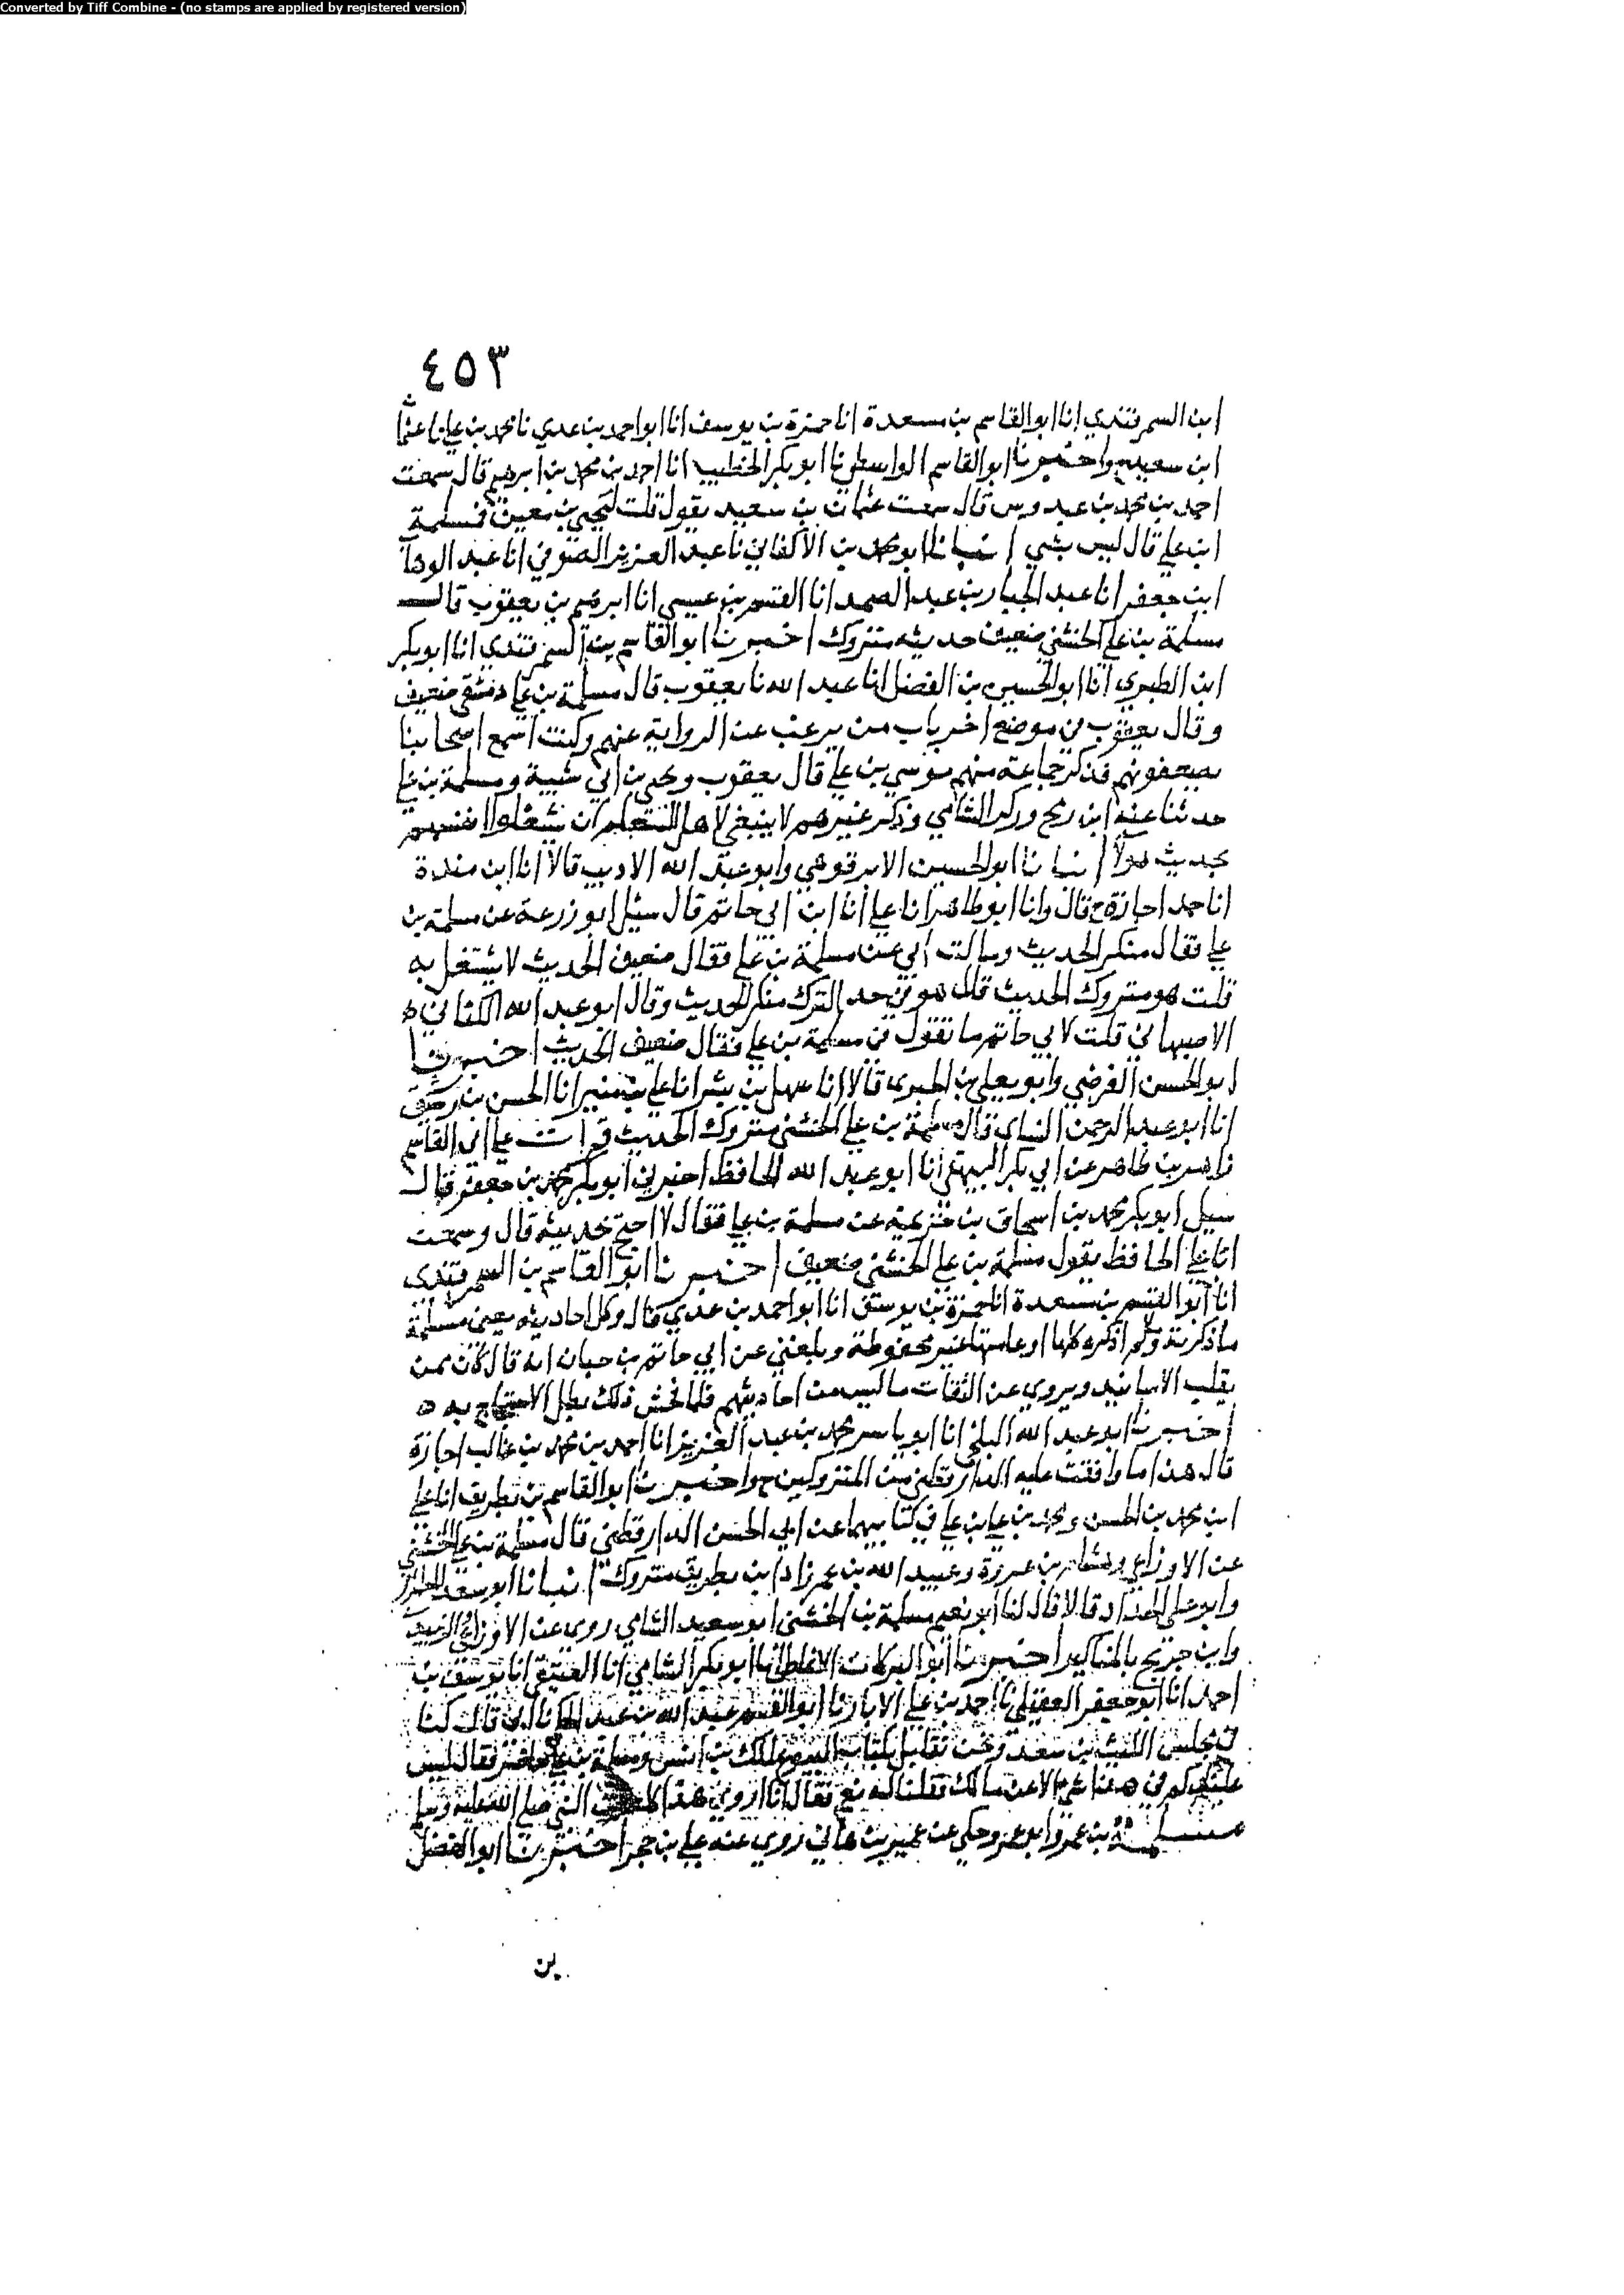 Converted by Tiff Combine - (no stamps are applied by registered version)
٤٥٣
ابن السمرقندي انا ابو القاسم بن مسعدة انا حمزة بن يوسف انا ابو احمد بن عدي نا محمد بن علي نا عثمان
ابن سعيد ح واخبرنا ابو القاسم الواسطي نا ابو بكر الخطيب انا احمد بن محمد بن ابرهيم قال سمعت
احمد بن محمد بن عبدوس قال سمعت عثمان بن سعيد يقول قلت ليحيى بن معين فمسلمة
ابن علي قال ليس بشي انبانا ابو محمد بن الاكفاني نا عبد العزيز الصوفي انا عبد الوهاب
ابن جعفر انا عبد الجبار بن عبد الصمد انا القسم بن عيسى انا ابرهيم بن يعقوب قال
مسلمة بن علي الخشني ضعيف حديثه متروك اخبرنا ابو القاسم بن السمرقندي انا ابو بكر
ابن الطبري انا ابو الحسين بن الفضل انا عبد الله نا يعقوب قال مسلمة بن علي دمشقي ضعيف
وقال يعقوب في موضع اخر باب من يرغب عن الرواية عنهم وكنت اسمع اصحابنا
يضعفونهم فذكر جماعة منهم موسى بن علي قال يعقوب ويحيى بن ابي شيبة ومسلمة بن علي
حدثنا عنه ابن رمح وركن الشامي وذكر غيرهم لا ينبغي لاهل العلم ان يشغلوا انفسهم
بحديث هولا انبانا ابو الحسين الابرقوهي وابو عبد الله الاديب قالا انا ابن مندة
انا حمد اجازة ح قال وانا ابو طاهر انا علي انا ابن ابي حاتم قال سئل ابو زرعة عن مسلمة بن
علي فقال منكر الحديث وسالت ابي عن مسلمة بن علي فقال ضعيف الحديث لا يشتغل به
قلت هو متروك الحديث قال هو في حد الترك منكر الحديث وقال ابو عبد الله الكتاني
الاصبهاني قلت لابي حاتم ما تقول في مسلمة بن علي فقال ضعيف الحديث اخبرنا
ابو الحسن الفرضي وابو يعلى بن الحبوبي قالا انا سهل بن بشر انا علي بن منير انا الحسن بن رشيق
انا ابو عبد الرحمن النساي قال مسلمة بن علي الخشني متروك الحديث قرات على ابي القاسم
زاهر بن طاهر عن ابي بكر البيهقي انا ابو عبد الله الحافظ اخبرني ابو بكر محمد بن جعفر قال
سئل ابو بكر محمد بن اسحاق بن خزيمة عن مسلمة بن علي فقال لا احتج بحديثه قال وسمعت
ابا علي الحافظ يقول مسلمة بن علي الخشني ضعيف اخبرنا ابو القاسم بن السمرقندي
انا ابو القسم بن مسعدة انا حمزة بن يوسف انا ابو احمد بن عدي قال وكل احاديثه يعني مسلمة
ما ذكرته ولم اذكره كلها او عامتها غير محفوظة وبلغني عن ابي حاتم بن حبان انه قال كان ممن
يقلب الاسانيد ويروي عن الثقات ما ليس من احاديثهم فلما فحش ذلك بطل الاحتجاج به ه
اخبرنا ابو عبد الله البلخي انا ابو ياسر محمد بن عبد العزيز انا احمد بن محمد بن غالب اجازة
قال هذا ما وافقت عليه الدارقطني من المتروكين ح واخبرنا ابو القاسم بن بطريق انا علي
ابن محمد بن الحسن ومحمد بن علي بن علي في كتابيهما عن ابي الحسن الدارقطني قال مسلمة بن علي الخشني
عن الاوزاعي وهشام بن عروة وعبيد الله بن عمر زاد ابن بطريق متروك انبانا ابو سعد المطرز
وابو علي الحداد قالا قال لنا ابو نعيم مسلمة بن الخشني ابو سعيد الشامي روى عن الاوزاعي والزبيدي
وابن جريج بالمناكير اخبرنا ابو البركات الانماطي انا ابو بكر الشامي انا العتيقي انا يوسف بن
احمد انا ابو جعفر العقيلي نا احمد بن علي الابار نا ابو القسم عبد الله بن عبد قال كنا
في مجلس الليث بن سعد ونحن نقابل بكتاب لمالك بن انس ومسلمة بن علي حاضر فقال ليس
عليكم في هذا شي الا عن مالك فقلنا له نعم فقال انا اروي هذا النبي صلى الله عليه وسلم
مسلمة بن عمرو ابو عمرو حكى عن عمير بن هاني روى عنه علي بن حجر اخبرنا ابو الفضل
بن